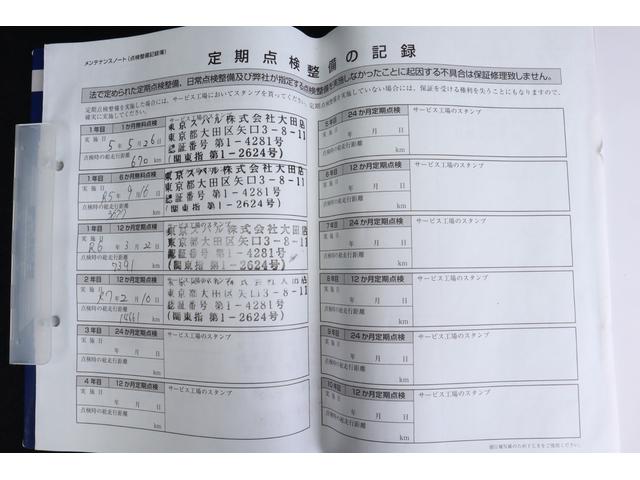 メンテナンスノート（点検整備記録簿）
定期点検整備の記録
法で定められた定期点検整備、日常点検整備及び弊社が指定する点検整備を実施しなかったことに起因する不具合は保証修理致しません。
定期点検整備を実施した場合には、サービス工場においてスタンプを貰ってください。定期点検整備を実施していない場合には、保証を受ける権利を失うことにもなりますので、
確実に実施してください。
1年目 1か月無料点検
実施日
5年5月26日
点検時の総走行距離
670 km
東京スバル株式会社大田店
東京都大田区矢口3-8-11
認証番号 第1-4281号
(関東指 第1-2624号)
1年目 6か月無料点検
実施日
R5年9月16日
点検時の総走行距離
km
東京スバル株式会社大田店
東京都大田区矢口3-8-11
認証番号 第1-4281号
(関東指 第1-2624号)
1年目 12か月定期点検 サービス工場のスタンプ
実施日
R6年3月22日
点検時の総走行距離
7391 km
東京スバル株式会社大田店
東京都大田区矢口3-8-11
認証番号 第1-4281号
(関東指 第1-2624号)
2年目 12か月定期点検
実施日
R7年2月10日
点検時の総走行距離
14661 km
東京都大田区矢口3-8-11
認証番号 第1-4281号
(関東指 第1-2624号)
3年目 24か月定期点検 サービス工場のスタンプ
実施日
年 月 日
点検時の総走行距離
km
4年目 12か月定期点検 サービス工場のスタンプ
実施日
年 月 日
点検時の総走行距離
km
5年目 24か月定期点検 サービス工場のスタンプ
実施日
年 月 日
点検時の総走行距離
km
6年目 12か月定期点検 サービス工場のスタンプ
実施日
年 月 日
点検時の総走行距離
km
7年目 24か月定期点検 サービス工場のスタンプ
実施日
年 月 日
点検時の総走行距離
km
8年目 12か月定期点検 サービス工場のスタンプ
実施日
年 月 日
点検時の総走行距離
km
9年目 24か月定期点検 サービス工場のスタンプ
実施日
年 月 日
点検時の総走行距離
km
10年目 12か月定期点検 サービス工場のスタンプ
実施日
年 月 日
点検時の総走行距離
km